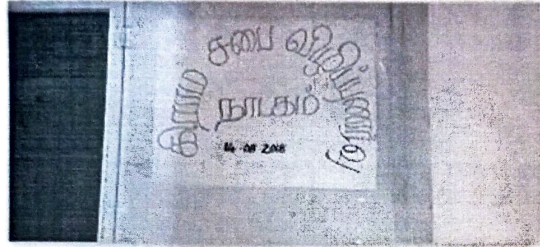 கிராம சபை விழிப்புணர்வு
நாடகம்
14 08 2018